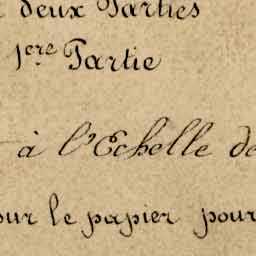 deux Parties
1ere Partie
à l'Echelle de
sur le papier pour